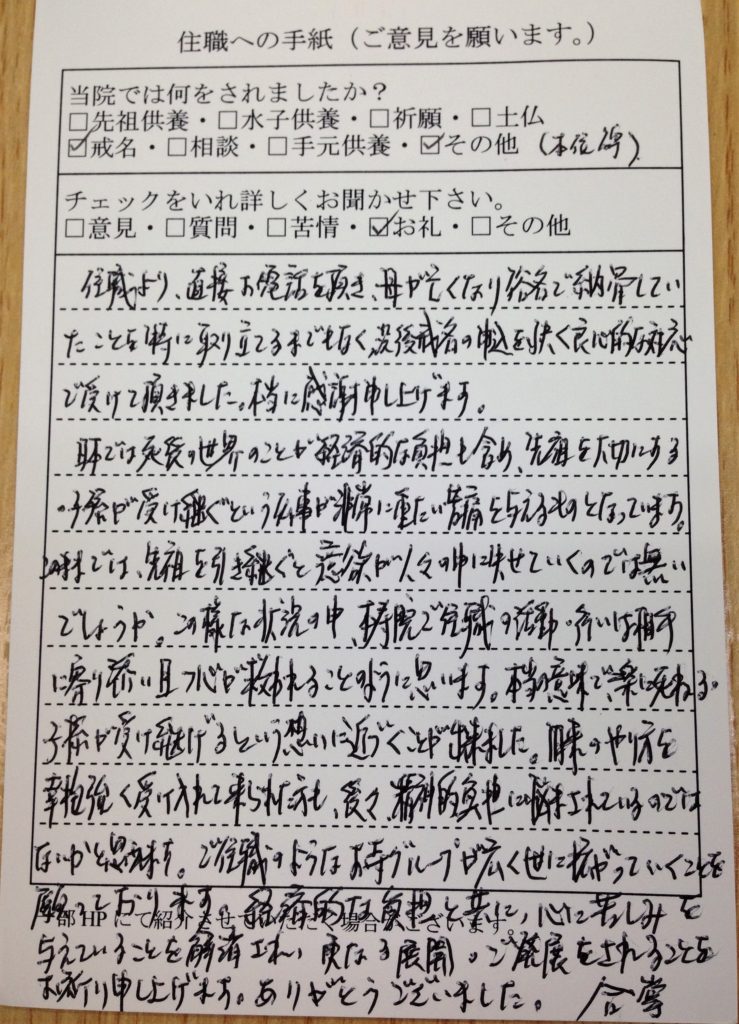 住職への手紙（ご意見を願います。）
当院では何をされましたか？
□先祖供養・□水子供養・□祈願・□土仏
☑戒名・□相談・□手元供養・☑その他（本位牌）
チェックをいれ詳しくお聞かせ下さい。
□意見・□質問・□苦情・☑お礼・□その他
住職より、直接お電話を頂き、母が亡くなり俗名で納骨してい
たことを特に取り立てるまでもなく没後戒名の申込を快く良心的な対応
で受けて頂きました。本当に感謝申し上げます。
日本では死後の世界のことが経済的な負担も含め、先祖を大切にする
の子孫が受け継ぐという行事が非常に重たい苦痛を与えるものとなっています。
このままでは、先祖を引き継ぐと意欲が人々の中に失せていくのでは無い
でしょうか。この様な状況の中、本寿院ご住職の活動・行いは相手
に寄り添い且つ心が救われることのように思います。本当の意味で、楽に死ねる。
子孫が受け継げるという想いに近づくことが出来ました。旧来のやり方を
辛抱強く受け入れて来られた方も、愛々、精神的負担に悩まされているのでは
ないかと思えます。ご住職のようなお寺グループが広く世に拡がっていくことを
願っております。経済的な負担と共に、心に苦しみを
部HPにて紹介させていただく場合がございます。
与えていることを解消され、更なる展開・ご発展をされることを
お祈り申し上げます。ありがとうございました。 合掌